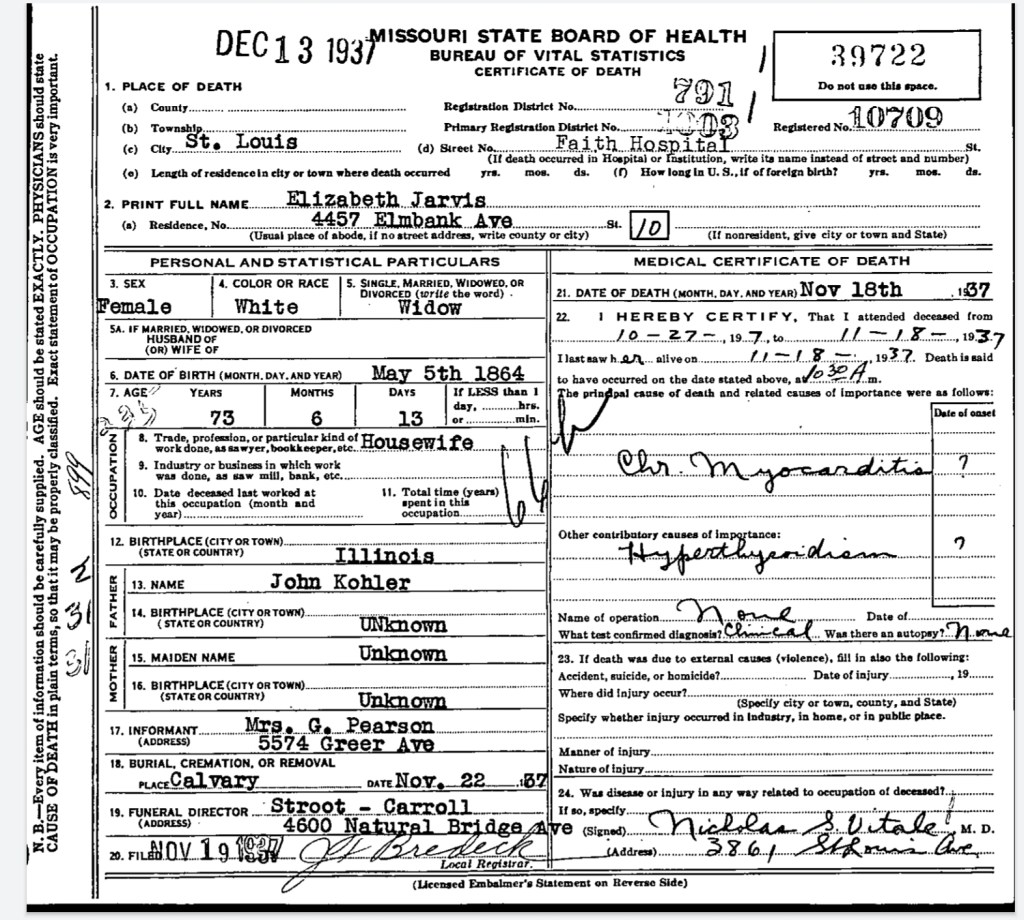 DEC 13 1937
MISSOURI STATE BOARD OF HEALTH
BUREAU OF VITAL STATISTICS
CERTIFICATE OF DEATH
39722
Do not use this space.
1. PLACE OF DEATH
(a) County
Registration District No. 791
(b) Township
Primary Registration District No. 1003
Registered No. 10709
(c) City St. Louis
(d) Street No. Faith Hospital St.
(If death occurred in Hospital or Institution, write its name instead of street and number)
(e) Length of residence in city or town where death occurred yrs. mos. ds. (f) How long in U. S., if of foreign birth? yrs. mos. ds.
2. PRINT FULL NAME Elizabeth Jarvis
(a) Residence, No. 4457 Elmbank Ave St. 10
(Usual place of abode, if no street address, write county or city) (If nonresident, give city or town and State)
PERSONAL AND STATISTICAL PARTICULARS
3. SEX
Female
4. COLOR OR RACE
White
5. SINGLE, MARRIED, WIDOWED, OR
DIVORCED (write the word)
Widow
5A. IF MARRIED, WIDOWED, OR DIVORCED
HUSBAND OF
(OR) WIFE OF
6. DATE OF BIRTH (MONTH, DAY, AND YEAR) May 5th 1864
7. AGE YEARS MONTHS DAYS If LESS than 1
day, hrs.
73 6 13 or min.
OCCUPATION
8. Trade, profession, or particular kind of
work done, as sawyer, bookkeeper, etc. Housewife
9. Industry or business in which work
was done, as saw mill, bank, etc.
10. Date deceased last worked at
this occupation (month and
year)
11. Total time (years)
spent in this
occupation
12. BIRTHPLACE (CITY OR TOWN)
(STATE OR COUNTRY) Illinois
FATHER
13. NAME John Kohler
14. BIRTHPLACE (CITY OR TOWN)
(STATE OR COUNTRY) UNknown
MOTHER
15. MAIDEN NAME Unknown
16. BIRTHPLACE (CITY OR TOWN)
(STATE OR COUNTRY) Unknown
17. INFORMANT Mrs. G. Pearson
(ADDRESS) 5574 Greer Ave
18. BURIAL, CREMATION, OR REMOVAL
PLACE Calvary DATE Nov. 22 1937
19. FUNERAL DIRECTOR Stroot - Carroll
(ADDRESS) 4600 Natural Bridge Ave
20. FILED NOV 19 1937 J F Bredeck
Local Registrar.
MEDICAL CERTIFICATE OF DEATH
21. DATE OF DEATH (MONTH, DAY, AND YEAR) Nov 18th 1937
22. I HEREBY CERTIFY, That I attended deceased from
10-27-, 1937, to 11-18-, 1937
I last saw her alive on 11-18-, 1937. Death is said
to have occurred on the date stated above, at 1030 A m.
The principal cause of death and related causes of importance were as follows:
Date of onset
Chr. Myocarditis ?
Other contributory causes of importance:
Hyperthyroidism ?
Name of operation None Date of
What test confirmed diagnosis? Clinical Was there an autopsy? None
23. If death was due to external causes (violence), fill in also the following:
Accident, suicide, or homicide? Date of injury, 19
Where did injury occur?
(Specify city or town, county, and State)
Specify whether injury occurred in industry, in home, or in public place.
Manner of injury
Nature of injury
24. Was disease or injury in any way related to occupation of deceased?
If so, specify
(Signed) Nicholas S. Vitale, M. D.
(Address) 3861 St Louis Ave
(Licensed Embalmer's Statement on Reverse Side)
N. B.—Every item of information should be carefully supplied. AGE should be stated EXACTLY. PHYSICIANS should state
CAUSE OF DEATH in plain terms, so that it may be properly classified. Exact statement of OCCUPATION is very important.